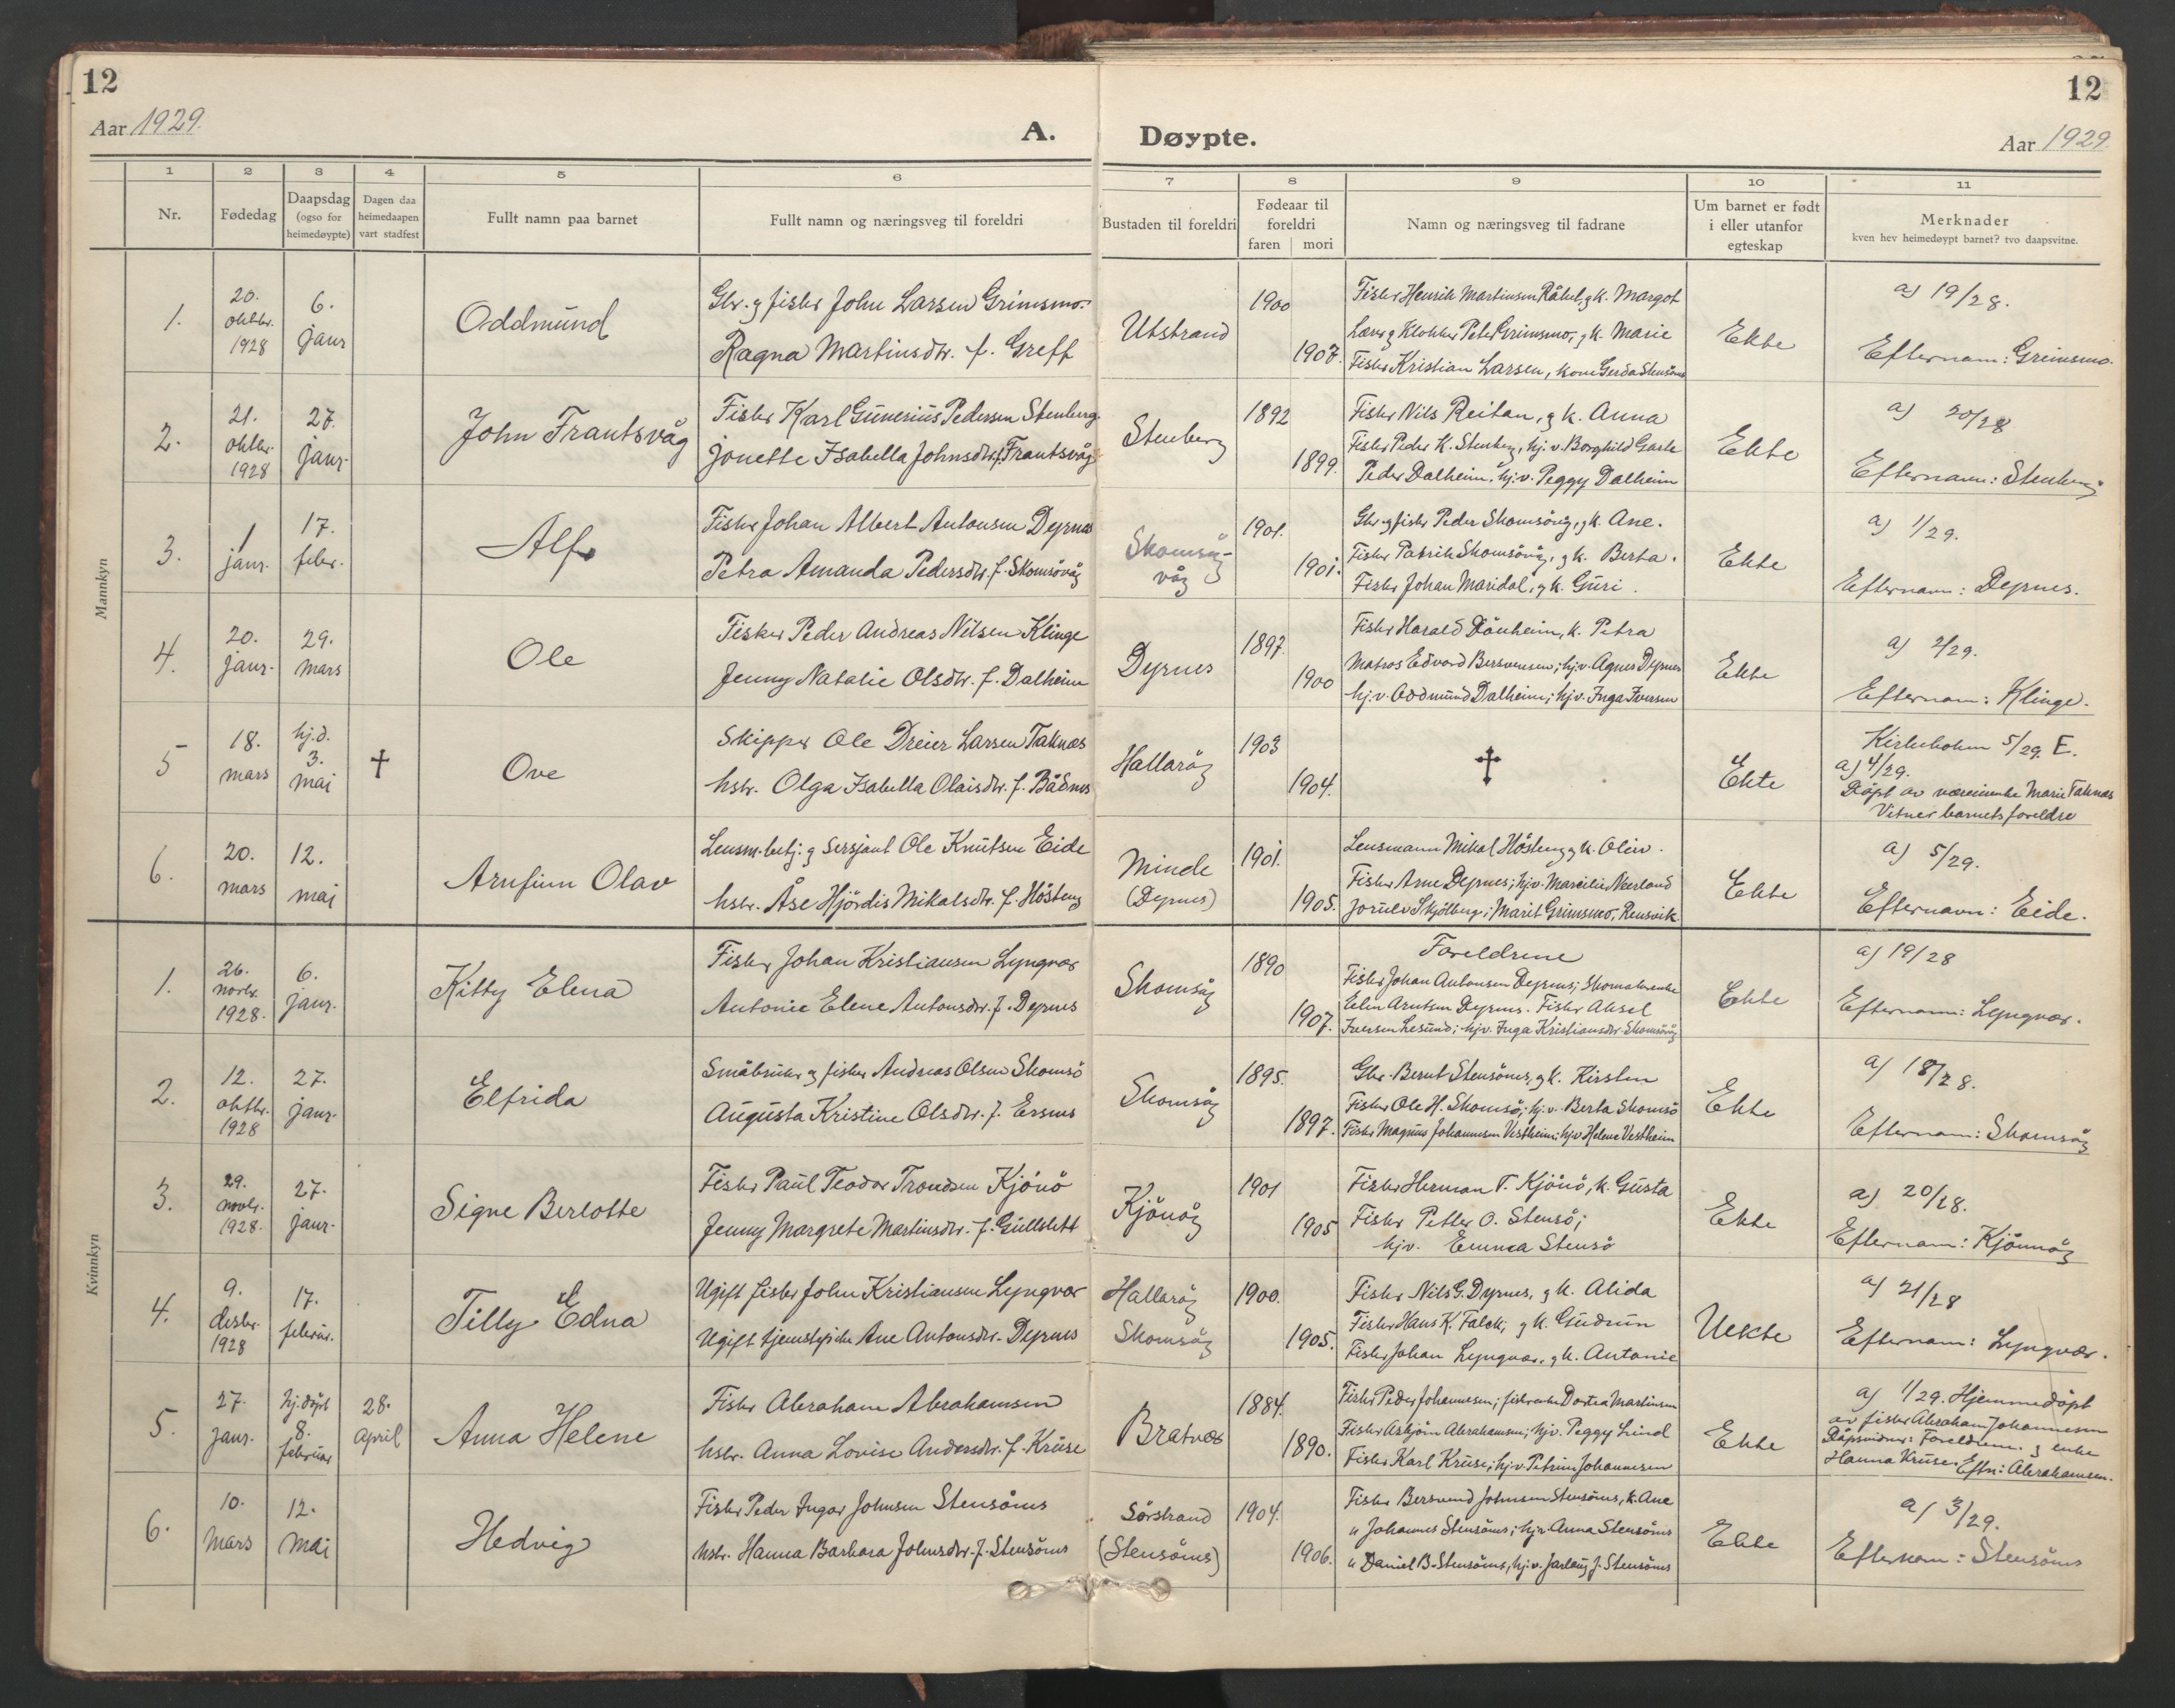 12
12
Aar 1929.
A.
Døypte.
Aar 1929.
1
2
3
4
5
6
7
8
9
10
11
Nr.
Fødedag
Daapsdag
(ogso for
heimedøypte)
Dagen daa
heimedaapen
vart stadfest
Fullt namn paa barnet
Fullt namn og næringsveg til foreldri
Bustaden til foreldri
Fødeaar til
foreldri
faren
mori
Namn og næringsveg til fadrane
Um barnet er født
i eller utanfor
egteskap
Merknader
kven hev heimedøypt barnet? tvo daapsvitne.
Mannkyn
1.
20.
oktbr.
1928
6.
janr
Oddmund
Gbr. g fisker John Larsen Grimsmo.
Ragna Martinsdtr. f. Greff
Utstrand
1900
1907.
Fisker Henrik Martinsen Råket, g k. Margot
Lærer g Klokker Peter Grimsmo, g k. Marie
Fisker Kristian Larsen, kone Gerda Stensönes
Ekte
a) 19/28.
Efternam: Grimsmo.
2.
21.
oktbr.
1928
27.
janr.
John Frantsvåg
Fisker Karl Gunerius Pedersen Stenberg.
Jonette Isabella Johnsdtr. f. Frantsvåg
Stenberg
1892
1899.
Fisker Nils Reitan, g k. Anna
Fisker Peder K. Stenberg, hj. v. Borghild
Peder Dalheim. hj. v. Peggy Dalheim
Ekte
a) 20/28
Efternavn: Stenberg
3.
1
janr.
17.
febr.
Alf
Fisker Johan Albert Antonsen Dyrnes
Petra Amanda Pedersdtr. f. Skomsövåg
Skomsöy-
våg
1901.
1901.
Gbr. g fisker Peder Skomsövåg, g k. Ane.
Fisker Patrik Skomsövåg, g k. Berta.
Fisker Johan Maridal, g k. Guri.
Ekte
a) 1/29.
Efternavn: Dyrnes.
4.
20.
janr.
29.
mars
Ole
Fisker Peder Andreas Nilsen Klinge
Jenny Natalie Olsdtr. f. Dalheim
Dyrnes
1897.
1900
Fisker Harald Dönheim, k. Petra
Matros Edvard Bersvensen; hj. v. Agnes Dyrnes
hj. v. Oddmund Dalheim; hj. v. Inga Iversen
Ekte
a) 2/29.
Efternam: Klinge.
5
18.
mars
hj.d.
3.
mai
†
Ove
Skipper Ole Dreier Larsen Taknes
hstr. Olga Isabella Olaisdtr. f. Bådnes
Hallaröy
1903
1904.
†
Ekte
Kirkeboken 5/29. E.
a) 4/29.
Döpt av Marie Taknes
Vitner barnets foreldre
6.
20.
mars
12.
mai
Arnfinn Olav
Lensm.betj. g Sersjant Ole Knutsen Eide
hstr. Åse Hjördis Mikalsdtr. f. Hösteng
Minde
(Dyrnes)
1901.
1905.
Lensmann Mikal Hösteng g k. Oliv.
Fisker Arne Dyrnes; hj. v. Marcilie Neerland
Jorulv Skjölberg; Marit Grimsmo, Rensvik
Ekte
a) 5/29.
Efternavn: Eide.
Kvinnkyn
1.
26.
novbr.
1928.
6.
janr.
Kitty Elena
Fisker Johan Kristiansen Lyngvær
Antonie Elene Antonsdtr. f. Dyrnes
Skomsöy
1890
1907.
Foreldrene
Fisker Johan Antonsen Dyrnes;
Elen Arntsen Dyrnes. Fisker Aksel
Iversen Lesund; hj. v. Inga Kristiansdtr Skomsövåg
Ekte
a) 19/28
Efternam: Lyngvær.
2.
12.
oktbr.
1928
27.
janr.
Elfrida
Småbruker g fisker Andreas Olsen Skomsö
Augusta Kristine Olsdtr. f. Ersnes
Skomsöy
1895.
1897.
Gbr. Bernt Stensönes, g k. Kirsten
Fisker Ole H. Skomsö; hj. v. Berta Skomsö
Fisker Magnus Johannesen Vestheim; hj.v Helene Vestheim
Ekte
a) 18/28.
Efternam: Skomsöy
3.
29.
novbr.
1928.
27.
janr.
Signe Berlotte
Fisker Paul Teodor Trondsen Kjönö
Jenny Margrete Martinsdtr. f. Gullstett
Kjönöy
1901
1905
Fisker Herman T. Kjönö, k. Gusta
Fisker Petter O. Stensö;
hj.v. Emma Stensö
Ekte
a) 20/28.
Efternam: Kjönnöy
4.
9.
desbr.
1928
17.
februar.
Tilly Edna
Ugift fisker John Kristiansen Lyngvær
Ugift tjenstpike Ane Antonsdtr. Dyrnes
Hallaröy
Skomsöy
1900.
1905.
Fisker Nils G. Dyrnes, g k. Alida
Fisker Hans K. Falck, g k. Gudrun
Fisker Johan Lyngvær, g k. Antonie
Uekte
a) 21/28
Efternam: Lyngvær.
5.
27.
janr.
hj.döpt
8.
februar
28.
April
Anna Helene
Fisker Abraham Abrahamsen
hstr. Anna Lovise Andersdtr. f. Kruse
Bratvær
1884.
1890.
Fisker Peder Johannesen; fiskerenke Dortea Martinsen
Fisker Asbjörn Abrahamsen; hj.v. Peggy Lund
Fisker Karl Kruse; hj.v. Petrine Johannesen
Ekte
a) 1/29. Hjemmedöpt
av fisker Abraham Johannesen
Dåpsvidner: Foreldrene. g enke
Hanna Kruse. Eftn: Abrahamsen.
6.
10.
Mars
12.
Mai
Hedvig
Fisker Peder Ingar Johnsen Stensönes
hstr. Hanna Barbara Johnsdtr. f. Stensönes
Sörstrand
(Stensönes)
1904.
1906.
Fisker Bersvend Johnsen Stensönes, k. Ane
" Johannes Stensönes; hj.v. Anna Stensönes
" Daniel B. Stensönes, hj. v. Jarlaug J. Stensönes
Ekte
a) 3/29.
Efternam: Stensönes